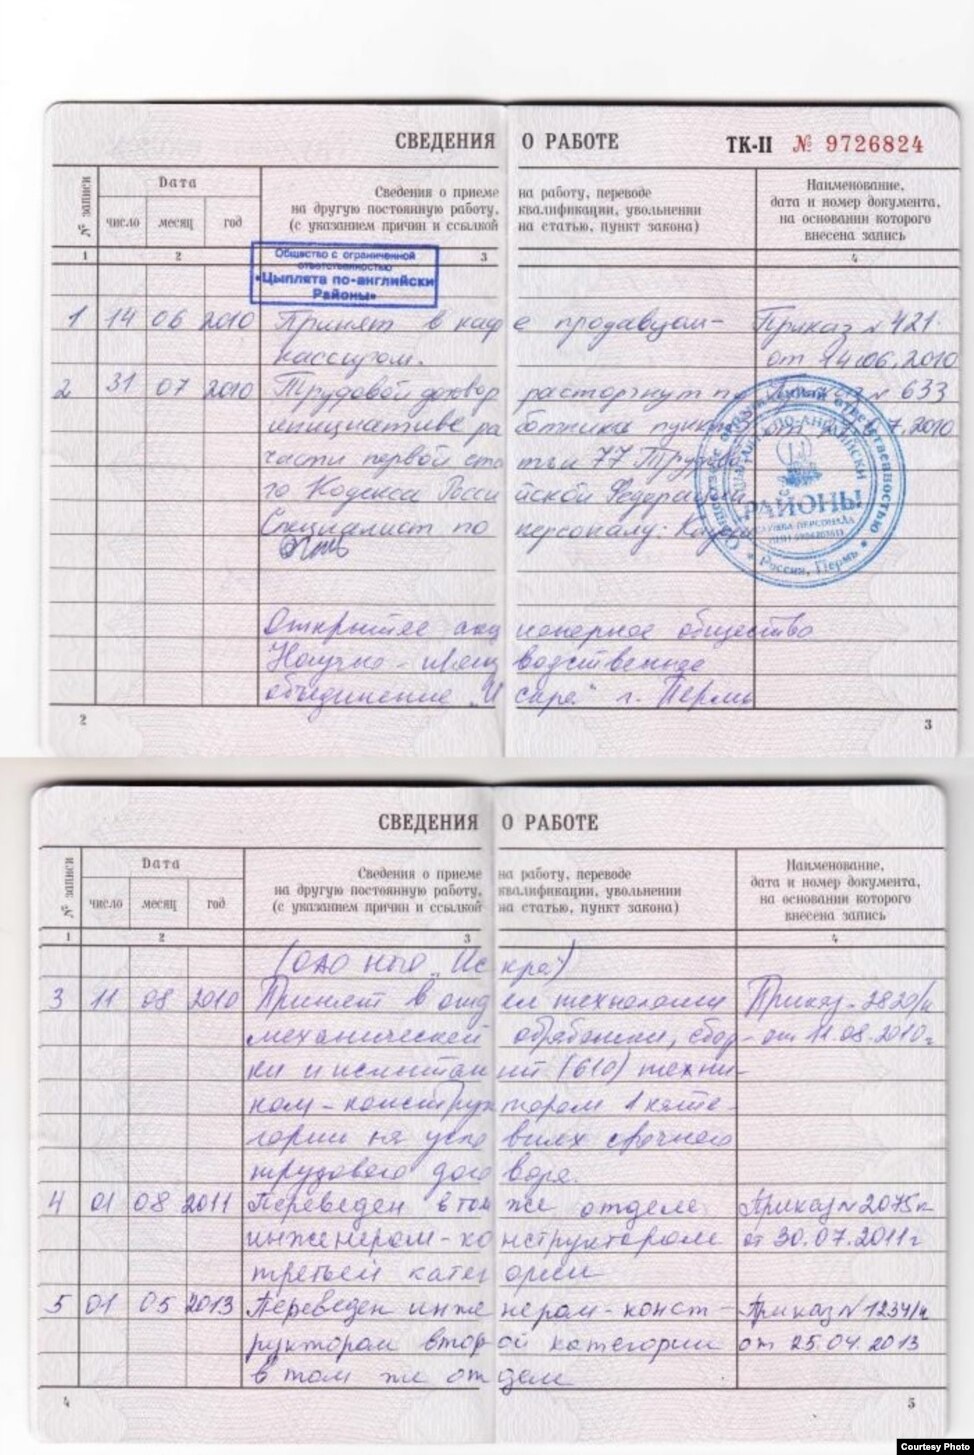 СВЕДЕНИЯ О РАБОТЕ ТК-II № 9726824
№ записи
Дата
число месяц год
Сведения о приеме на работу, переводе
на другую постоянную работу, квалификации, увольнении
(с указанием причин и ссылкой на статью, пункт закона)
Наименование,
дата и номер документа,
на основании которого
внесена запись
1 2 3 4
Общество с ограниченной
ответственностью
«Цыплята по-английски
Районы»
1 14 06 2010 Принят в кафе продавцом- Приказ № 421
кассиром. от 14.06.2010
2 31 07 2010 Трудовой договор расторгнут по Приказ № 633
инициативе работника пункт 3 7.2010
части первой статьи 77 Трудово
го Кодекса Российской Федерации
Специалист по персоналу:
РАЙОНЫ
СЛУЖБА ПЕРСОНАЛА
Россия, Пермь
Открытое акционерное общество
Научно-производственное
объединение "Искра" г. Пермь
2 3
СВЕДЕНИЯ О РАБОТЕ
№ записи
Дата
число месяц год
Сведения о приеме на работу, переводе
на другую постоянную работу, квалификации, увольнении
(с указанием причин и ссылкой на статью, пункт закона)
Наименование,
дата и номер документа,
на основании которого
внесена запись
1 2 3 4
(ОАО НПО "Искра")
3 11 08 2010 Принят в отдел технологии Приказ-2820/к
механической обработки, сбор- от 11.08.2010г
ки и испытаний (610) техни-
ком-конструктором 1 кате-
гории на условиях срочного
трудового договора.
4 01 08 2011 Переведен в том же отделе Приказ № 2075к
инженером-конструктором от 30.07.2011г
третьей категории
5 01 05 2013 Переведен инженером-конст- Приказ № 1234/к
руктором второй категории от 25.04.2013
в том же отделе
4 5
Courtesy Photo